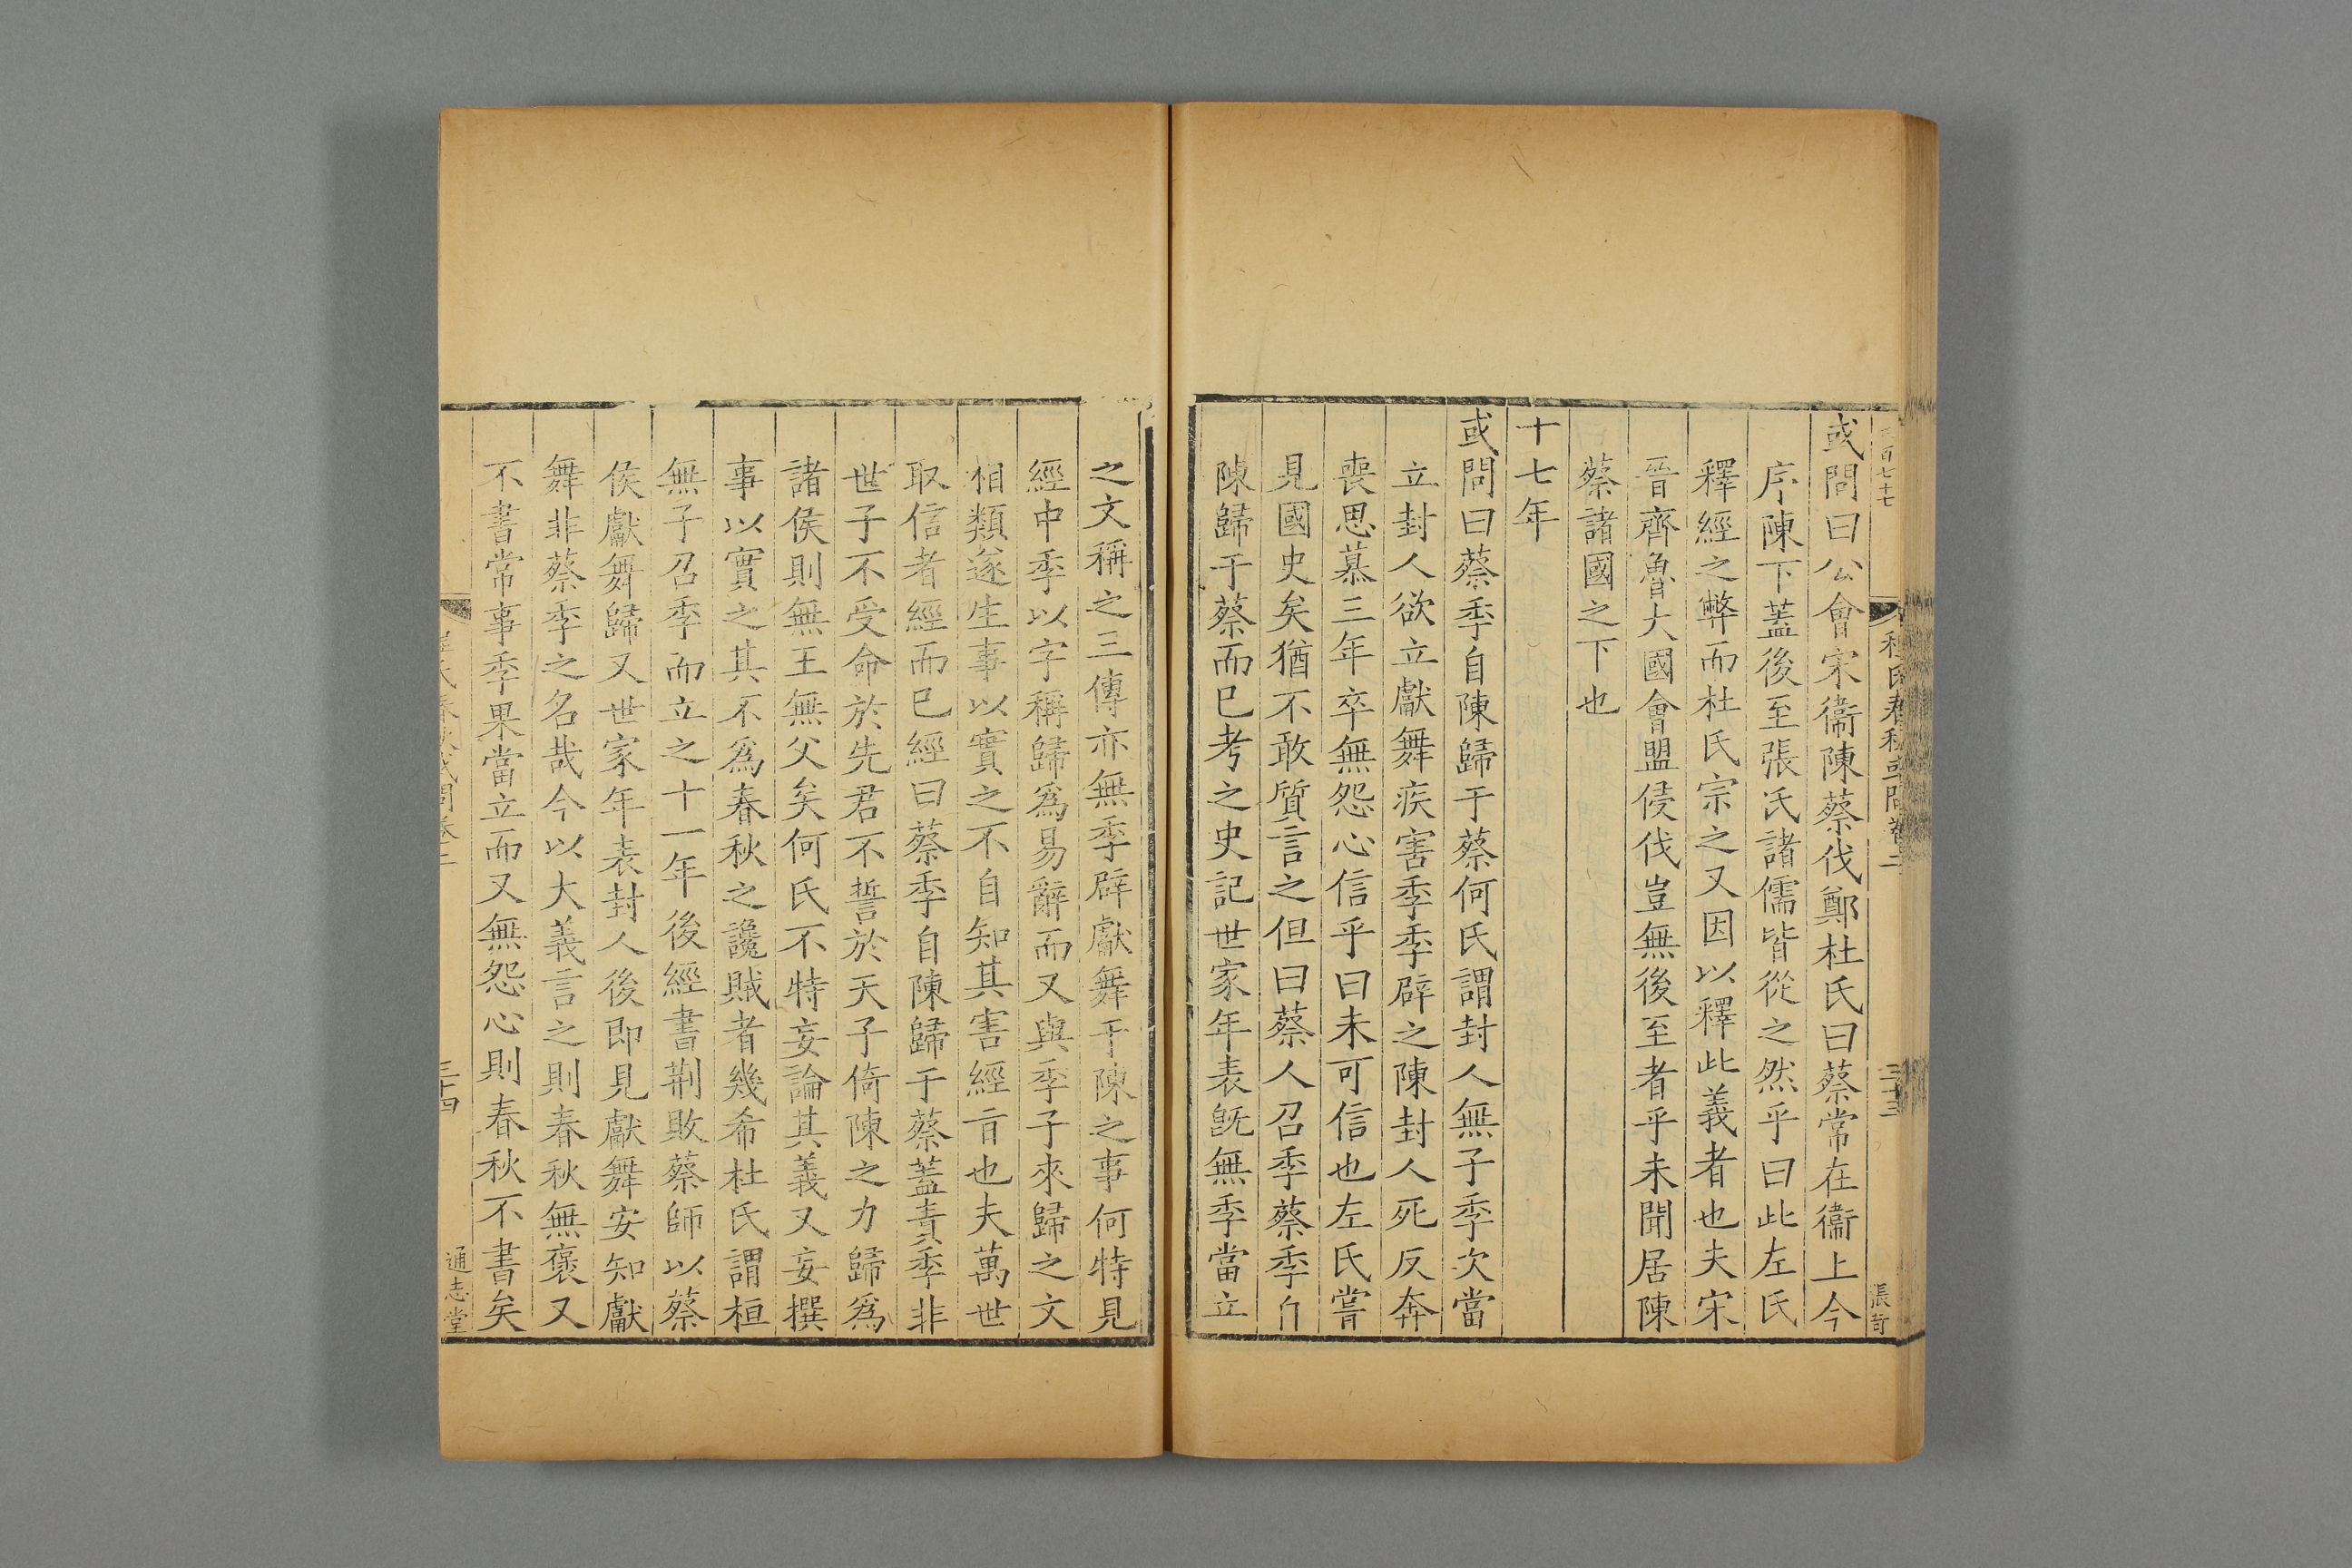 百七十七
程氏春秋或問卷二
三十三
張奇
或問曰公會宋衞陳蔡伐鄭杜氏曰蔡常在衞上今
序陳下蓋後至張氏諸儒皆從之然乎曰此左氏
釋經之弊而杜氏宗之又因以釋此義者也夫宋
晉齊魯大國會盟侵伐豈無後至者乎未聞居陳
蔡諸國之下也
十七年
或問曰蔡季自陳歸于蔡何氏謂封人無子季次當
立封人欲立獻舞疾害季季辟之陳封人死反奔
喪思慕三年卒無怨心信乎曰未可信也左氏嘗
見國史矣猶不敢質言之但曰蔡人召季蔡季自
陳歸于蔡而巳考之史記世家年表旣無季當立
之文稱之三傳亦無季辟獻舞于陳之事何特見
經中季以字稱歸爲易辭而又與季子來歸之文
相類遂生事以實之不自知其害經旨也夫萬世
取信者經而巳經曰蔡季自陳歸于蔡蓋責季非
世子不受命於先君不誓於天子倚陳之力歸爲
諸侯則無王無父矣何氏不特妄論其義又妄撰
事以實之其不爲春秋之讒賊者幾希杜氏謂桓
無子召季而立之十一年後經書荆敗蔡師以蔡
侯獻舞歸又世家年表封人後即見獻舞安知獻
舞非蔡季之名哉今以大義言之則春秋無褒又
不書常事季果當立而又無怨心則春秋不書矣
程氏春秋或問卷二
三十四
通志堂